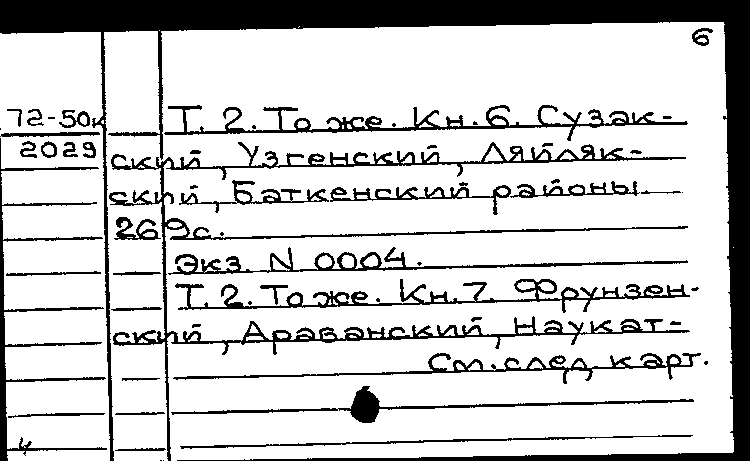 6
72-50к
2029
Т. 2. То же. Кн. 6. Сузак-
ский, Узгенский, Ляйляк-
ский, Баткенский районы.
269с.
Экз. N 0004.
Т. 2. То же. Кн. 7. Фрунзен-
ский, Араванский, Наукат-
См. след. карт.
4